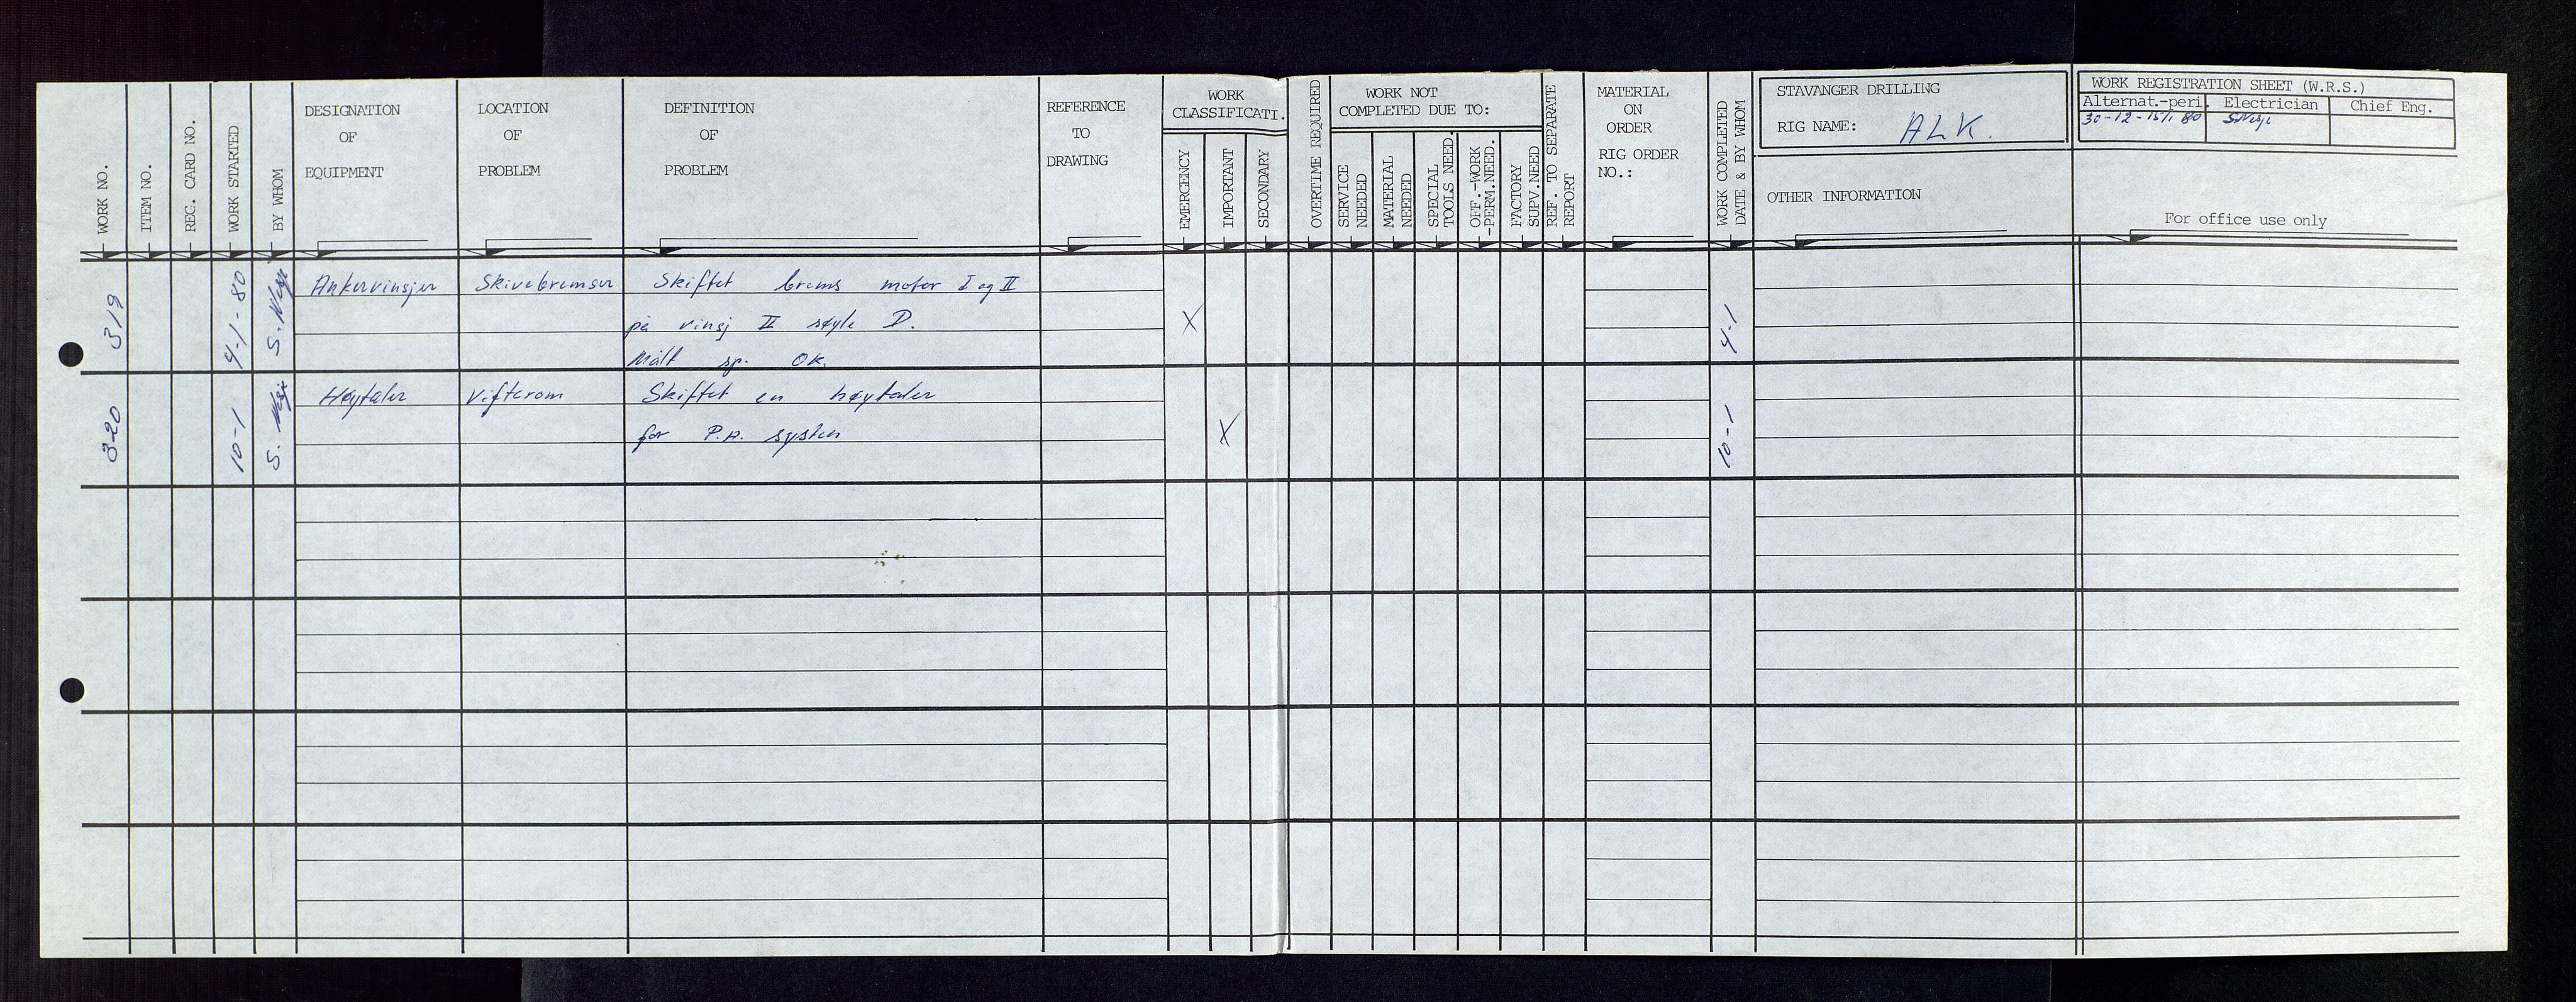 WORK NO.
ITEM NO.
REG. CARD NO.
WORK STARTED
BY WHOM
DESIGNATION
OF
EQUIPMENT
LOCATION
OF
PROBLEM
DEFINITION
OF
PROBLEM
REFERENCE
TO
DRAWING
WORK
CLASSIFICATI.
EMERGENCY
IMPORTANT
SECONDARY
OVERTIME REQUIRED
WORK NOT
COMPLETED DUE TO:
SERVICE
NEEDED
MATERIAL
NEEDED
SPECIAL
TOOLS NEED.
OFF.-WORK
-PERM.NEED.
FACTORY
SUPV.NEED
REF. TO SEPARATE
REPORT
MATERIAL
ON
ORDER
RIG ORDER
NO.:
WORK COMPLETED
DATE & BY WHOM
STAVANGER DRILLING
RIG NAME: ALK.
OTHER INFORMATION
WORK REGISTRATION SHEET (W.R.S.)
Alternat.-peri. Electrician Chief Eng.
30-12-15/1 80
For office use only
319 4-1-80 S. Ankervinsjer Skivebremser Skiftet brems motor I og II
på vinsj II søyle D. X 4-1
Målt sp. OK.
320 10-1 S. Høytaler Vifterom Skiftet en høytaler
for P.A. system X 10-1